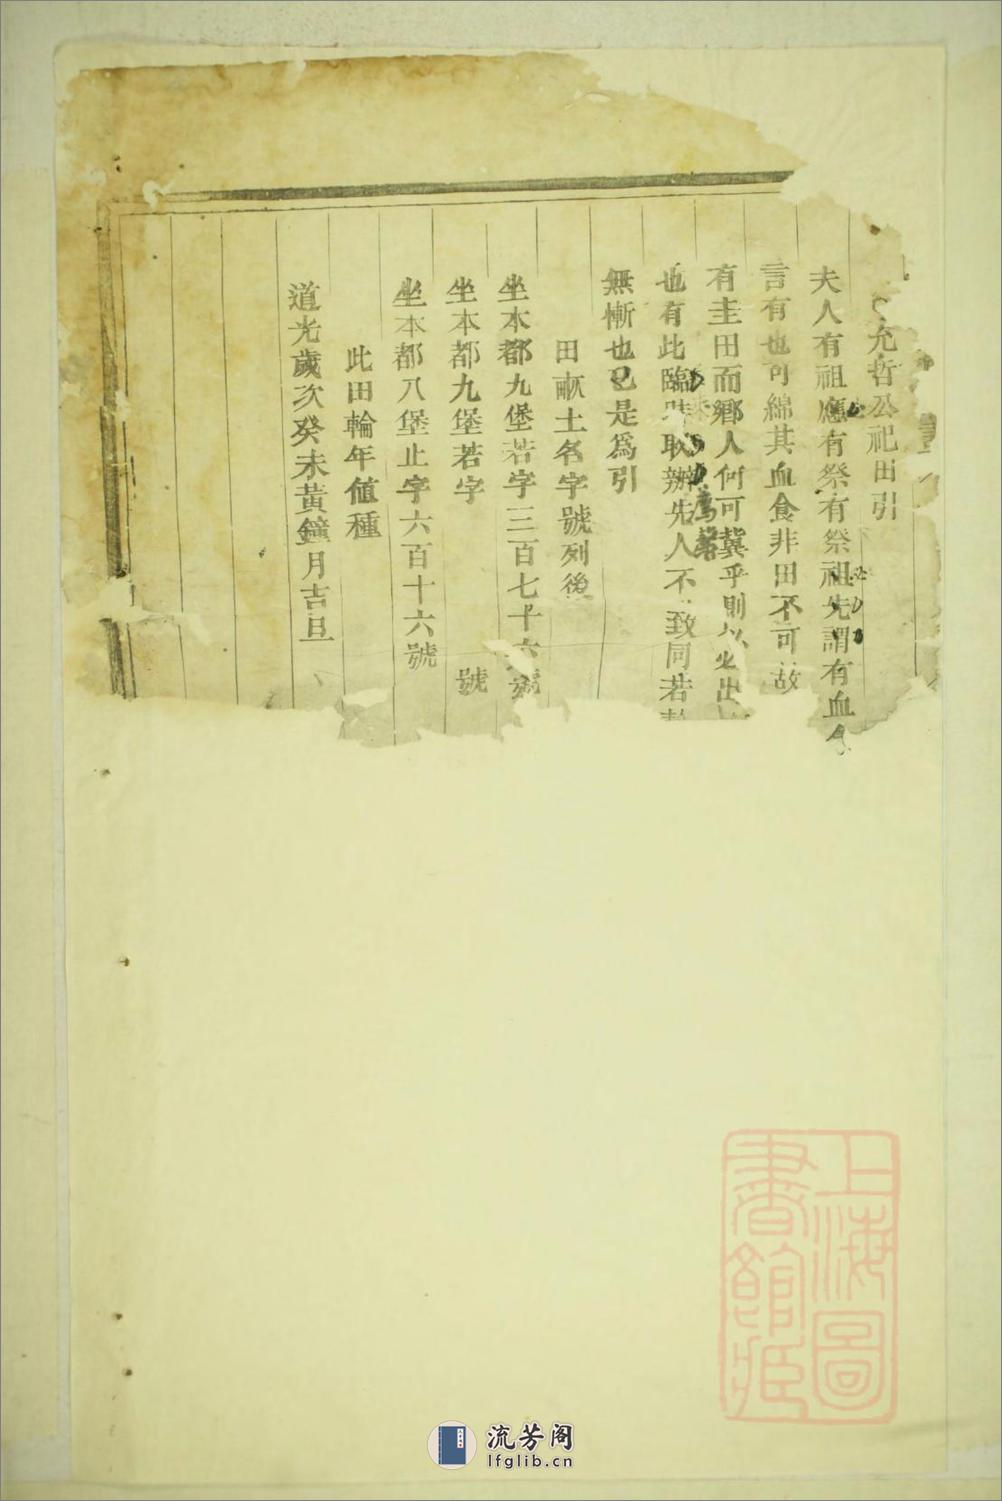 允哲公祀田引
夫人有祖應有祭有祭祖先謂有血
言有也可綿其血食非田不可故
有圭田而鄉人何可冀乎則以必出
也有此臨時耿辦先人不致同若
薦馨
無慚也已是為引
田畝土名字號列後
坐本都九堡若字三百七十六號
坐本都九堡若字 號
坐本都八堡止字六百十六號
此田輪年值種
道光歲次癸未黃鐘月吉旦
上海圖
書館藏
流芳阁
lfglib.cn